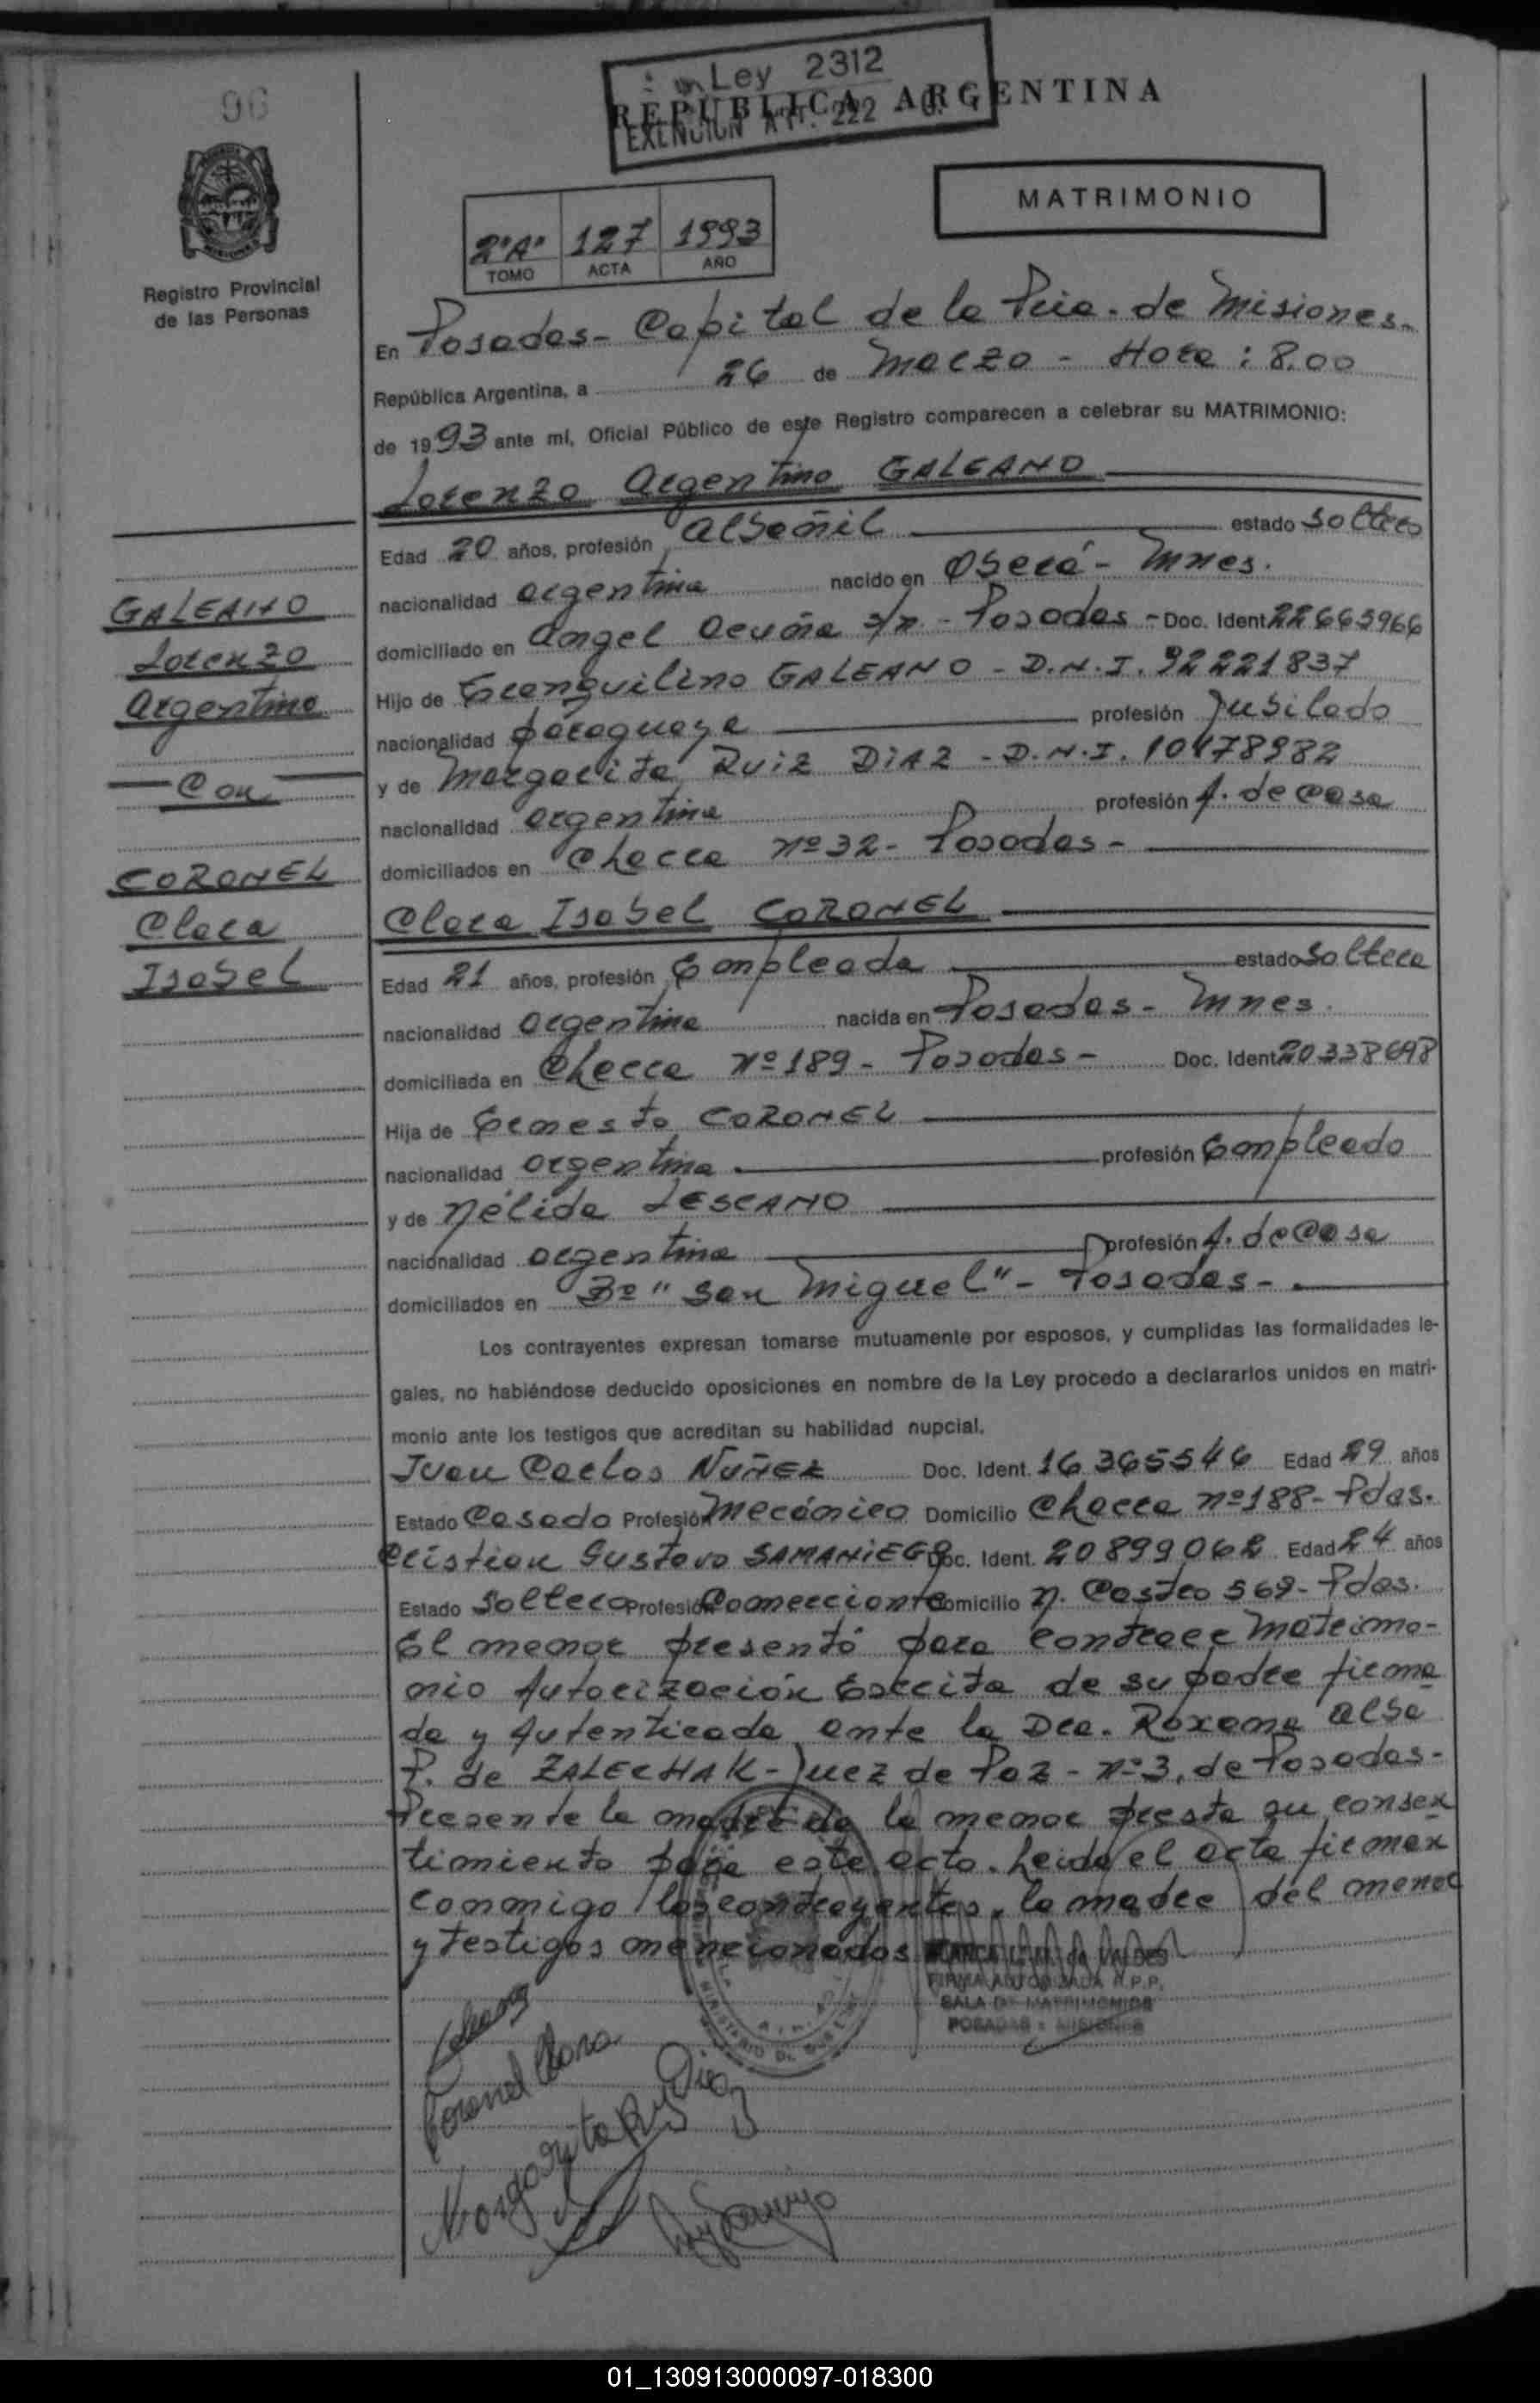 96
Ley 2312
REPUBLICA ARGENTINA
EXENCION ATT. 222
MATRIMONIO
2º"A" 127 1993
TOMO ACTA AÑO
Registro Provincial
de las Personas
En Posadas- Capital de la Pcia. de Misiones.
República Argentina, a 26 de Marzo - Hora: 8.00
de 1993 ante mí, Oficial Público de este Registro comparecen a celebrar su MATRIMONIO:
Lorenzo Argentino GALEANO
Edad 20 años, profesión Albañil estado Soltero
nacionalidad argentina nacido en Oberá - Mnes.
domiciliado en Angel Acuña s/n - Posadas - Doc. Ident 22665966
Hijo de GALEANO - D.N.I. 92221837
nacionalidad paraguaya profesión Jubilado
y de Margarita RUIZ DIAZ - D.N.I. 10478982
nacionalidad argentina profesión A. de Casa
domiciliados en Chacra Nº 32- Posadas -
Clara Isabel CORONEL
Edad 21 años, profesión Empleada estado Soltera
nacionalidad argentina nacida en Posadas - Mnes.
domiciliada en Chacra Nº 189 - Posadas - Doc. Ident 20338698
Hija de Ernesto CORONEL
nacionalidad argentina profesión Empleado
y de Nélida LESCANO
nacionalidad argentina profesión A. de Casa
domiciliados en Bº "San Miguel" - Posadas -
Los contrayentes expresan tomarse mutuamente por esposos, y cumplidas las formalidades le-
gales, no habiéndose deducido oposiciones en nombre de la Ley procedo a declararlos unidos en matri-
monio ante los testigos que acreditan su habilidad nupcial.
Juan Carlos NUÑEZ Doc. Ident. 16.365546 Edad 29 años
Estado Casado Profesión Mecánico Domicilio Chacra Nº 188- Pdas.
Cristian Gustavo SAMANIEGO Doc. Ident. 20899062 Edad 24 años
Estado Soltero Profesión Comerciante Domicilio N. Castro 569- Pdas.
El menor presentó para contraer Matrimo-
nio Autorización Escrita de su padre firma
da y Autenticada ante la Dra. Roxana Alba
P. de ZALECHAK - Juez de Paz - Nº 3, de Posadas-
Presente la madre de la menor presta su consen
timiento para este acto. Leída el acta firman
conmigo los contrayentes, la madre del menor
y testigos mencionados
de VALDES
FIRMA AUTORIZADA R.P.P.
SALA DE MATRIMONIOS
POSADAS - MISIONES
Coronel Clara
Margarita Ruiz Diaz
GALEANO
Lorenzo
Argentino
Con
CORONEL
Clara
Isabel
01_130913000097-018300